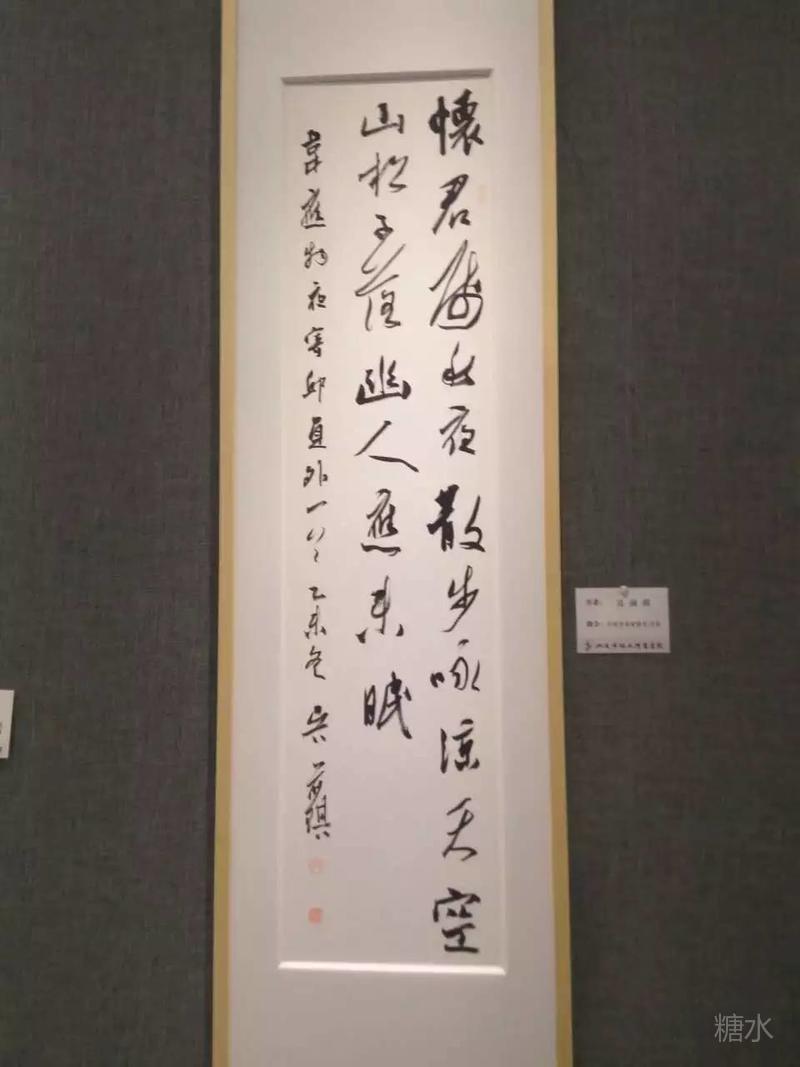 懷君屬秋夜散步咏涼天空
山松子落幽人應未眠
韋應物夜寄邱員外一首乙未冬吴
糖水